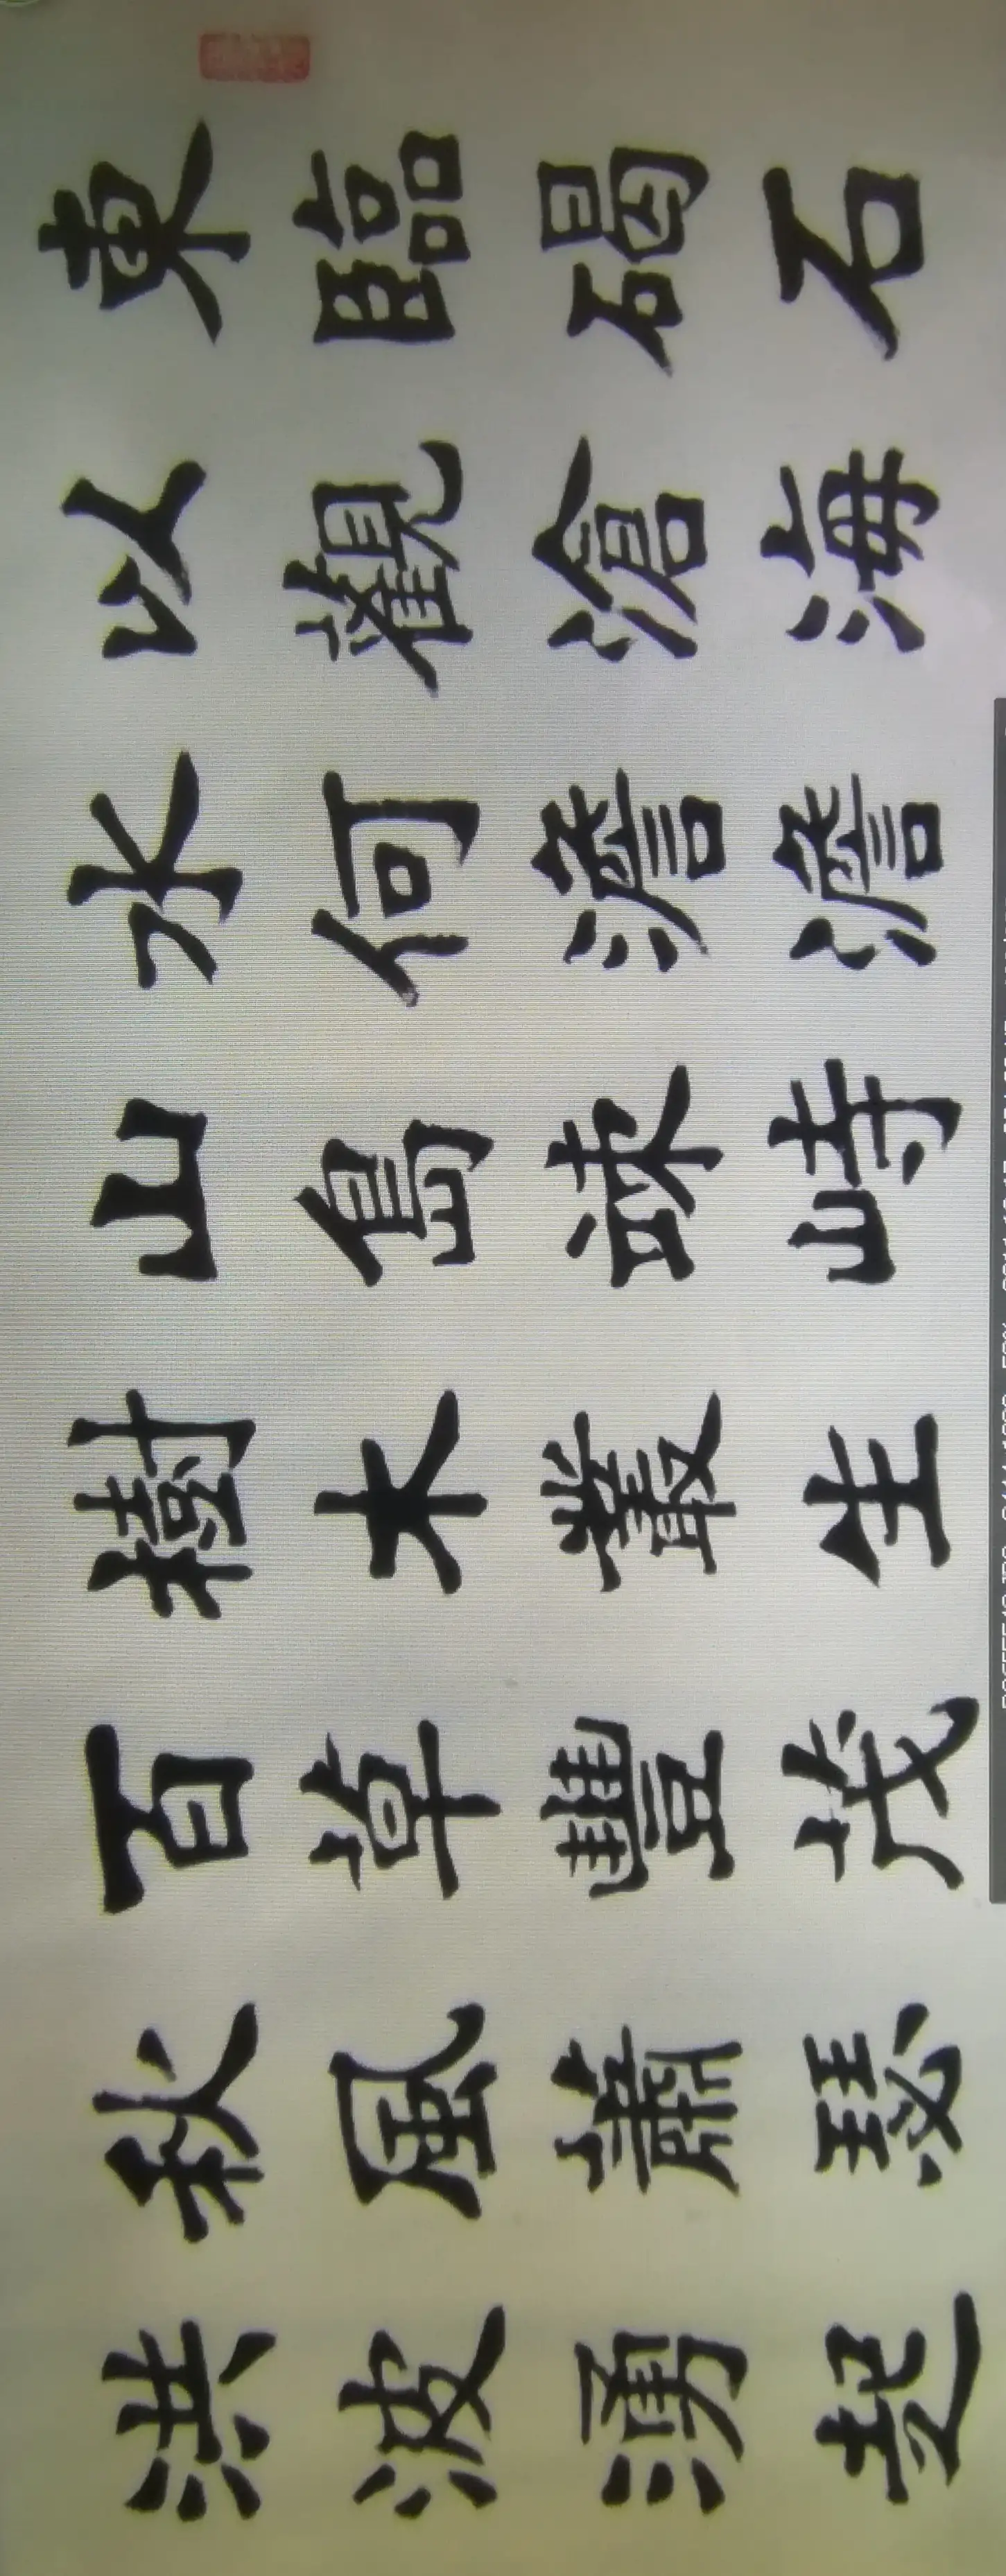 東臨碣石
以觀滄海
水何澹澹
山島竦峙
樹木叢生
百草豐茂
秋風蕭瑟
洪波湧起